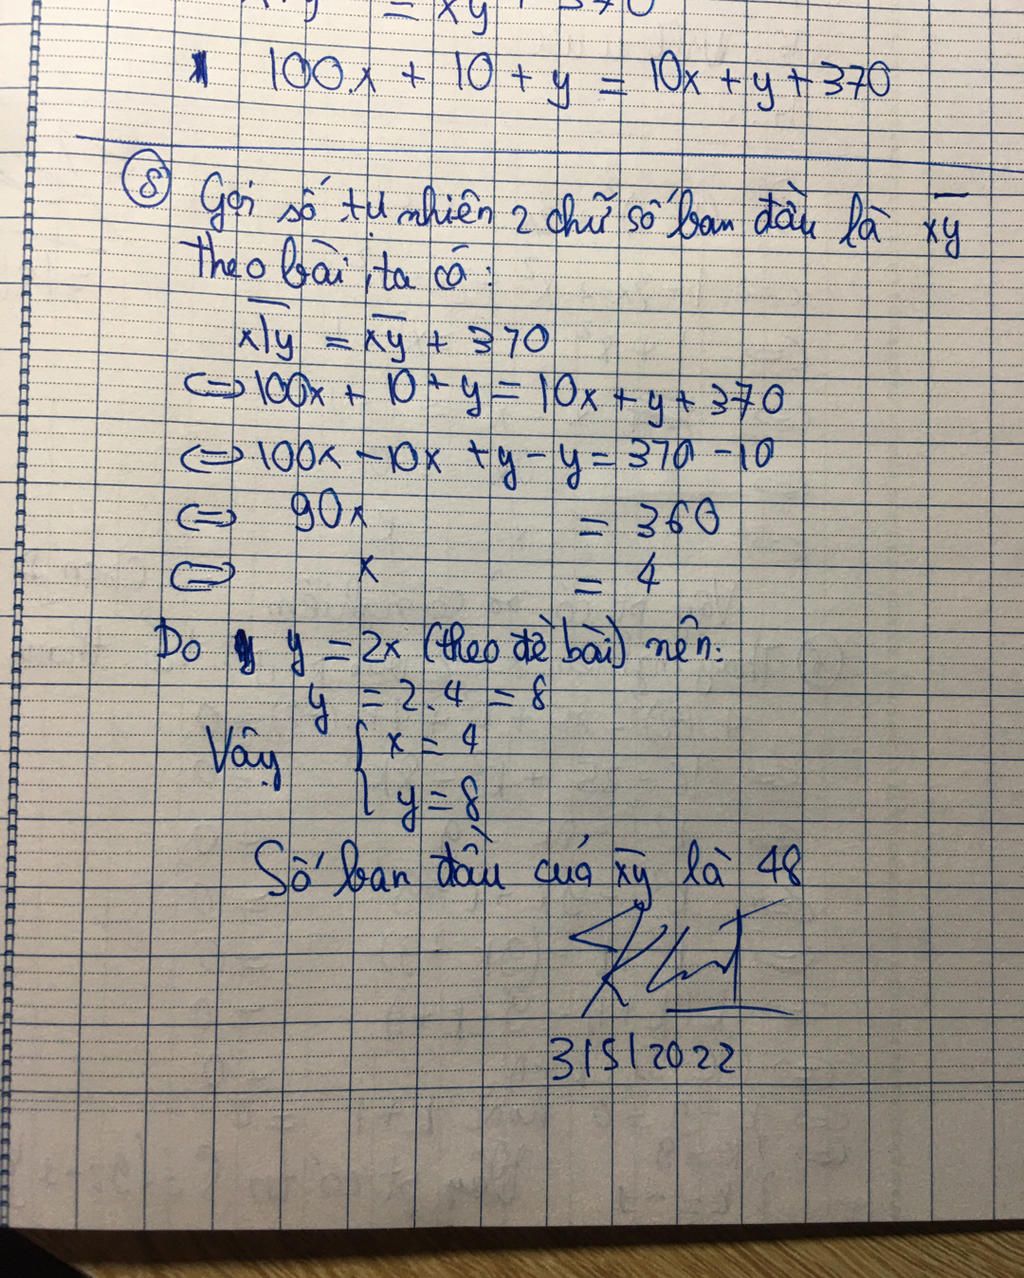 = xy + 370
100.x + 10 + y = 10x + y + 370
8 Gọi số tự nhiên 2 chữ số ban đầu là x̅y̅
Theo bài, ta có:
x̅1̅y̅ = x̅y̅ + 370
⇔ 100x + 10 + y = 10x + y + 370
⇔ 100x - 10x + y - y = 370 - 10
⇔ 90x = 360
⇔ x = 4
Do y = 2x (theo đề bài) nên:
y = 2.4 = 8
Vậy { x = 4
y = 8
Số ban đầu của x̅y̅ là 48
3/5/2022